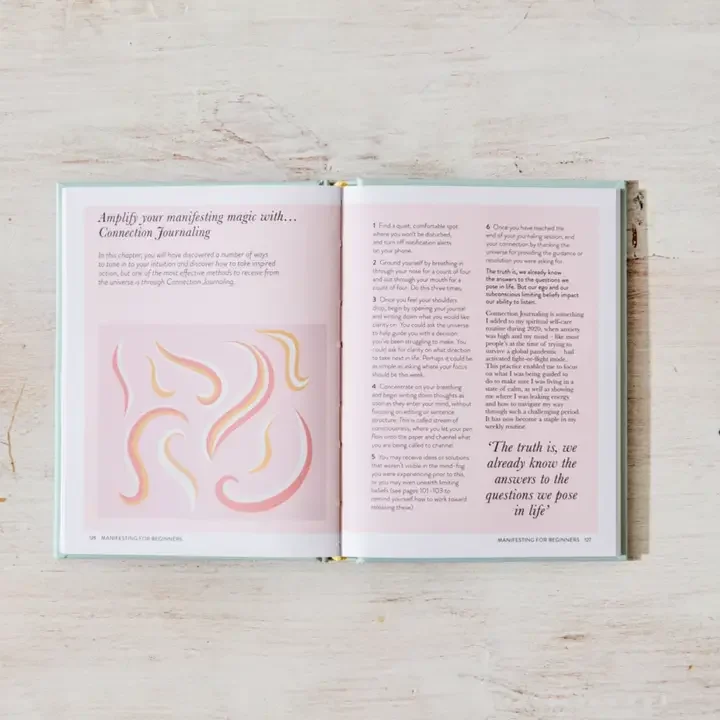 Amplify your manifesting magic with...
Connection Journaling
In this chapter, you will have discovered a number of ways
to tune in to your intuition and discover how to take inspired
action, but one of the most effective methods to receive from
the universe is through Connection Journaling.
126 MANIFESTING FOR BEGINNERS
1 Find a quiet, comfortable spot
where you won't be disturbed,
and turn off notification alerts
on your phone.
2 Ground yourself by breathing in
through your nose for a count of four
and out through your mouth for a
count of four. Do this three times.
3 Once you feel your shoulders
drop, begin by opening your journal
and writing down what you would like
clarity on. You could ask the universe
to help guide you with a decision
you've been struggling to make. You
could ask for clarity on what direction
to take next in life. Perhaps it could be
as simple as asking where your focus
should be this week.
4 Concentrate on your breathing
and begin writing down thoughts as
soon as they enter your mind, without
focusing on editing or sentence
structure. This is called stream of
consciousness, where you let your pen
flow onto the paper and channel what
you are being called to channel.
5 You may receive ideas or solutions
that weren't visible in the mind-fog
you were experiencing prior to this,
or you may even unearth limiting
beliefs (see pages 101–103 to
remind yourself how to work toward
releasing these).
6 Once you have reached the
end of your journaling session, end
your connection by thanking the
universe for providing the guidance or
resolution you were asking for.
The truth is, we already know
the answers to the questions we
pose in life. But our ego and our
subconscious limiting beliefs impact
our ability to listen.
Connection Journaling is something
I added to my spiritual self-care
routine during 2020, when anxiety
was high and my mind – like most
people's at the time of trying to
survive a global pandemic – had
activated fight-or-flight mode.
This practice enabled me to focus
on what I was being guided to
do to make sure I was living in a
state of calm, as well as showing
me where I was leaking energy
and how to navigate my way
through such a challenging period.
It has now become a staple in my
weekly routine.
‘The truth is, we
already know the
answers to the
questions we pose
in life’
MANIFESTING FOR BEGINNERS 127